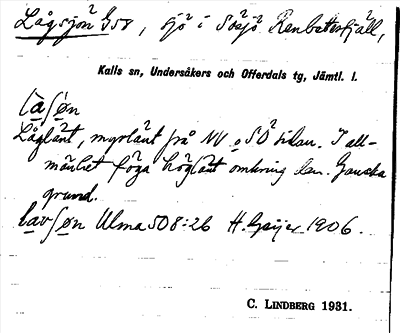 Lågsjön G58, sjö i Sösjö Renbetesfjäll,
Kalls sn, Undersåkers och Offerdals tg, Jämtl. l.
låsøn
Låglänt, myrlänt på NV o SÖ sidan. I all-
mänhet föga högländt omkring den. Ganska
grund.
lavsøn Ulma 508:26 H. Geijer 1906.
C. LINDBERG 1931.